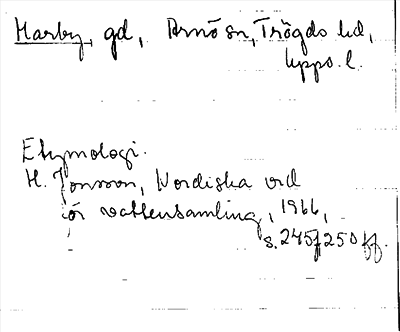 Harby, gd, Arnö sn, Trögds hd,
Upps. l.
Etymologi.
H. Jonsson, Nordiska ord
för vattensamling, 1966,
s. 245, 250 ff.